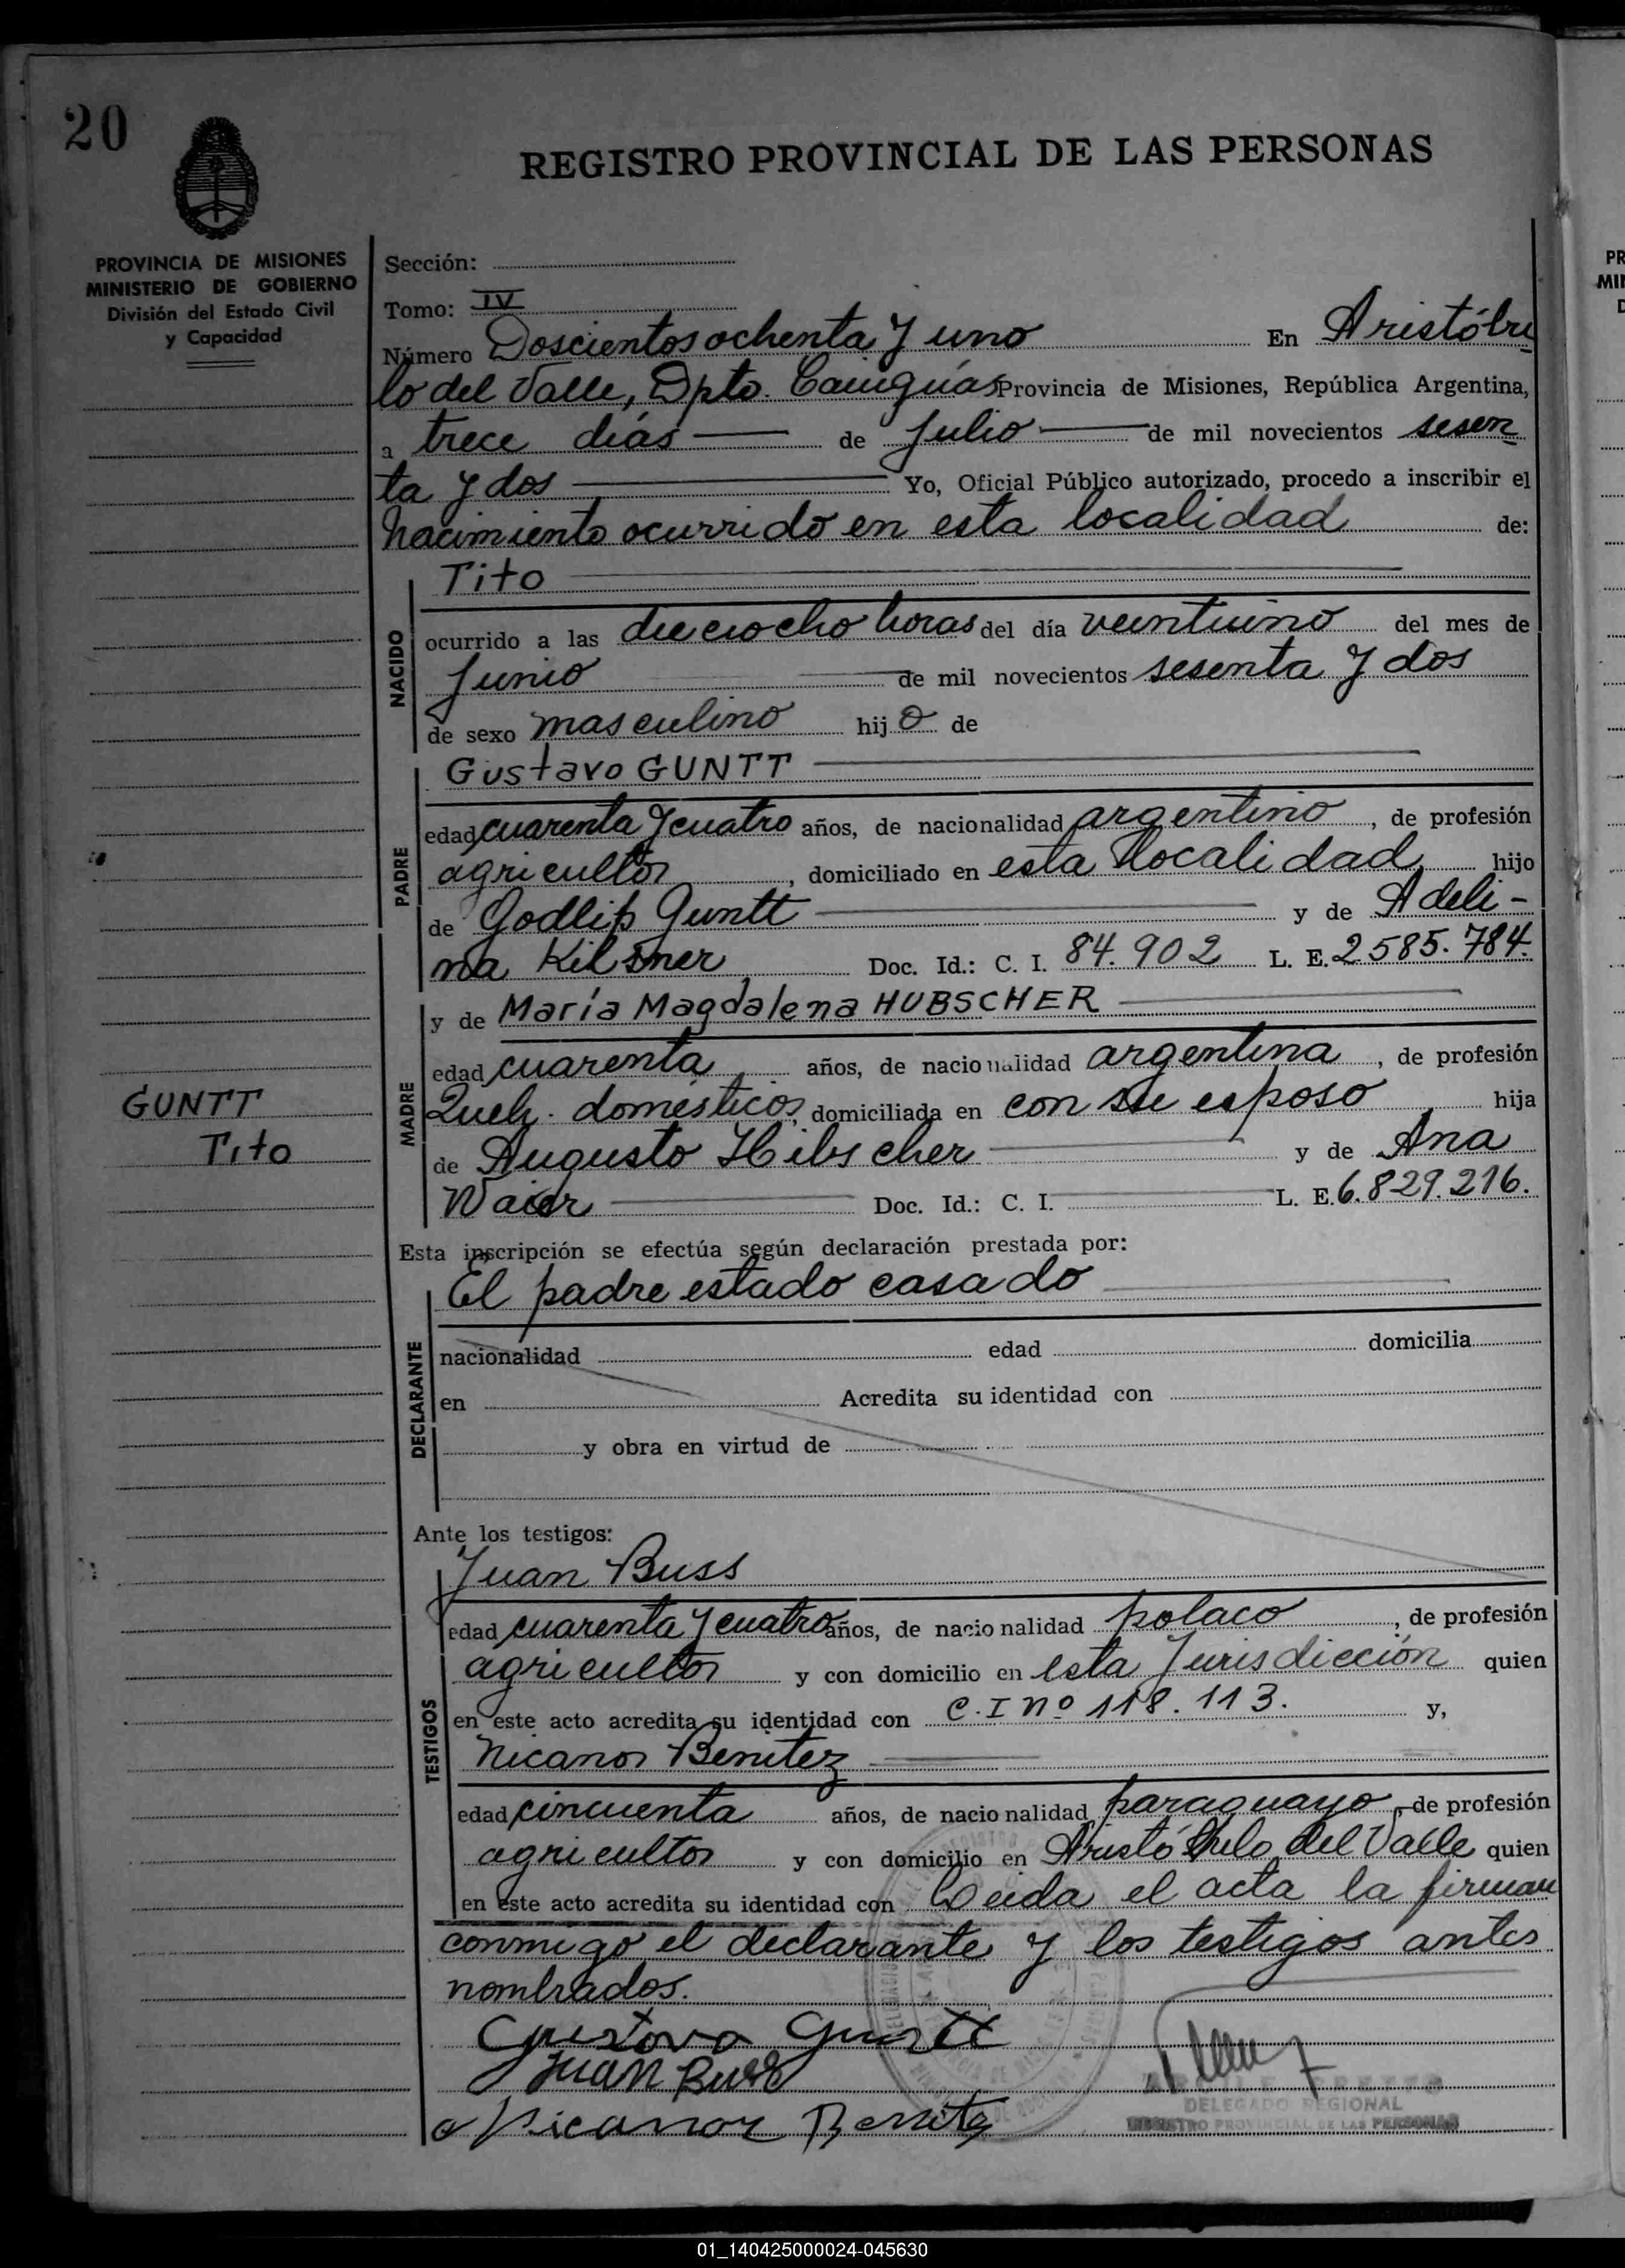 20
REGISTRO PROVINCIAL DE LAS PERSONAS
PROVINCIA DE MISIONES
MINISTERIO DE GOBIERNO
División del Estado Civil
y Capacidad
Sección:
Tomo: IV
Número Doscientos ochenta y uno En Aristóbu
lo del Valle, Dpto. Cainguás Provincia de Misiones, República Argentina,
a trece días de Julio de mil novecientos sesen
ta y dos Yo, Oficial Público autorizado, procedo a inscribir el
nacimiento ocurrido en esta localidad de:
NACIDO
Tito
ocurrido a las dieciocho horas del día veintiuno del mes de
Junio de mil novecientos sesenta y dos
de sexo masculino hijo de
PADRE
Gustavo GUNTT
edad cuarenta y cuatro años, de nacionalidad argentino, de profesión
agricultor, domiciliado en esta localidad hijo
de Godlip Guntt y de Adeli-
na Doc. Id.: C. I. 84.902 L. E. 2.585.784.
MADRE
y de María Magdalena HUBSCHER
edad cuarenta años, de nacionalidad argentina, de profesión
Queh. domésticos, domiciliada en con su esposo hija
de Augusto Hibscher y de Ana
Doc. Id.: C. I. L. E. 6.829.216.
GUNTT
Tito
Esta inscripción se efectúa según declaración prestada por:
DECLARANTE
El padre estado casado
nacionalidad edad domicilia
en Acredita su identidad con
y obra en virtud de
Ante los testigos:
TESTIGOS
Juan Buss
edad cuarenta y cuatro años, de nacionalidad polaco, de profesión
agricultor y con domicilio en esta Jurisdicción quien
en este acto acredita su identidad con C.I nº 118.113. y,
Nicanor Benitez
edad cincuenta años, de nacionalidad paraguayo, de profesión
agricultor y con domicilio en Aristóbulo del Valle quien
en este acto acredita su identidad con Leida el acta la firman
conmigo el declarante y los testigos antes
nombrados.
Gustavo Guntt
Juan Buss
Nicanor Benitez
DELEGADO REGIONAL
REGISTRO PROVINCIAL DE LAS PERSONAS
01_140425000024-045630